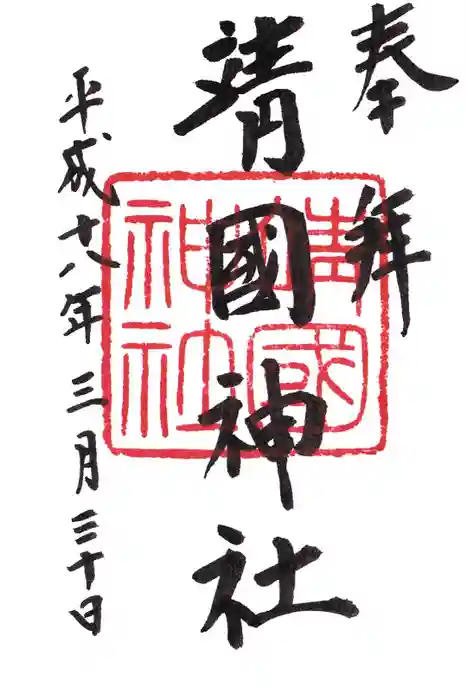 奉拝
靖國神社
靖國
神社
平成十八年三月三十日